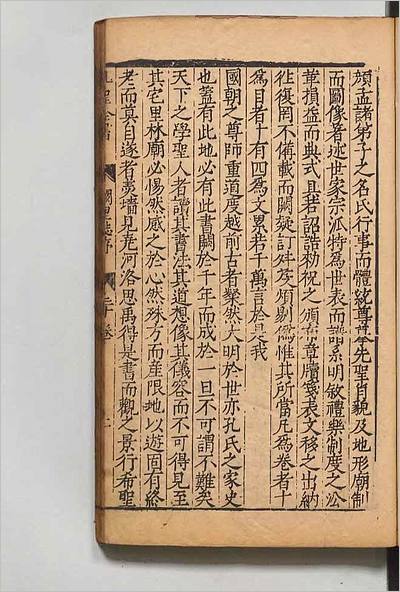 顔孟諸弟子之名氏行事而體統尊荅先聖自貌及地形廟制
而圖像著述世家宗派特為世表而譜系明敏禮樂制度之㳂
華損益而典式具若詔誥勑祝之頒布章牘箋表文移之出納
徃復罔不備載而闕疑訂舛芟煩剔偽惟其所當凡為卷者十
為目者十有四為文累若千萬言於是我
國朝之尊師重道度越前古者粲然大明於世亦孔氏之家史
也蓋有此地必有此書闕於千年而成於一旦不可謂不難矣
天下之學聖人者讀其書法其道想像其儀容而不可得見至
其宅里林廟必惕然感之於心然殊方而産限地以遊固有終
老而莫自遂者夢墻見堯河洛思禹得是書而觀之景行希聖